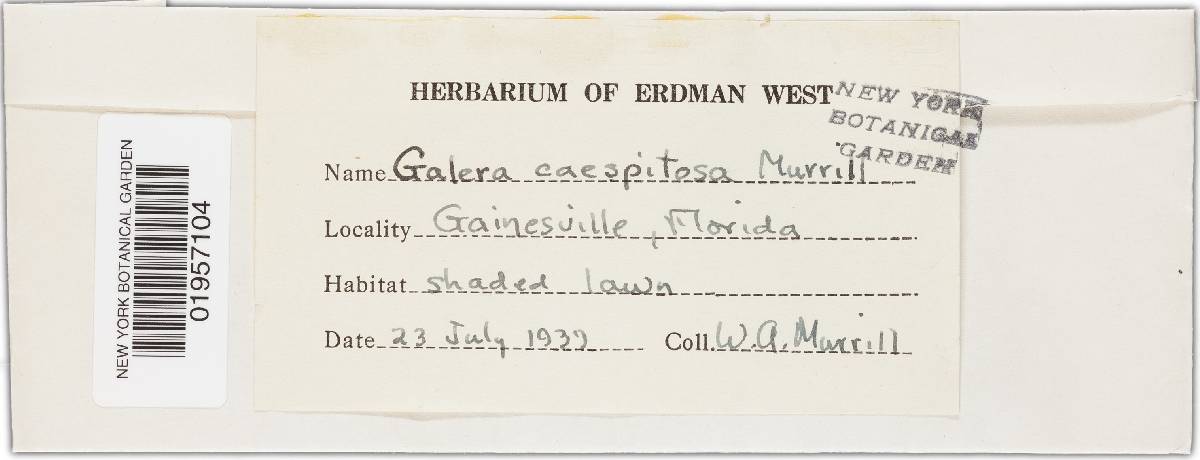 HERBARIUM OF ERDMAN WEST
NEW YORK
BOTANICAL
GARDEN
Name Galera caespitosa Murrill
Locality Gainesville, Florida
Habitat shaded lawn
Date 23 July 1937 Coll. W.A. Murrill
NEW YORK BOTANICAL GARDEN
01957104